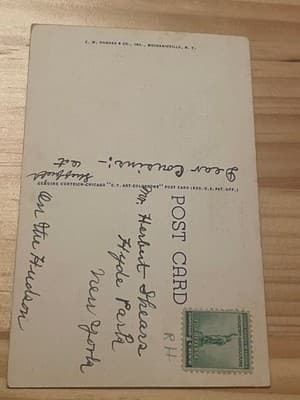 C. W. HUGHES & CO., INC., MECHANICVILLE, N. Y.
Dear Cousins:-
GENUINE CURTEICH-CHICAGO "C.T. ART-COLORTONE" POST CARD (REG. U.S. PAT. OFF.)
POST CARD
Mr. Herbert Shears
Hyde Park
New York
On the Hudson
RH